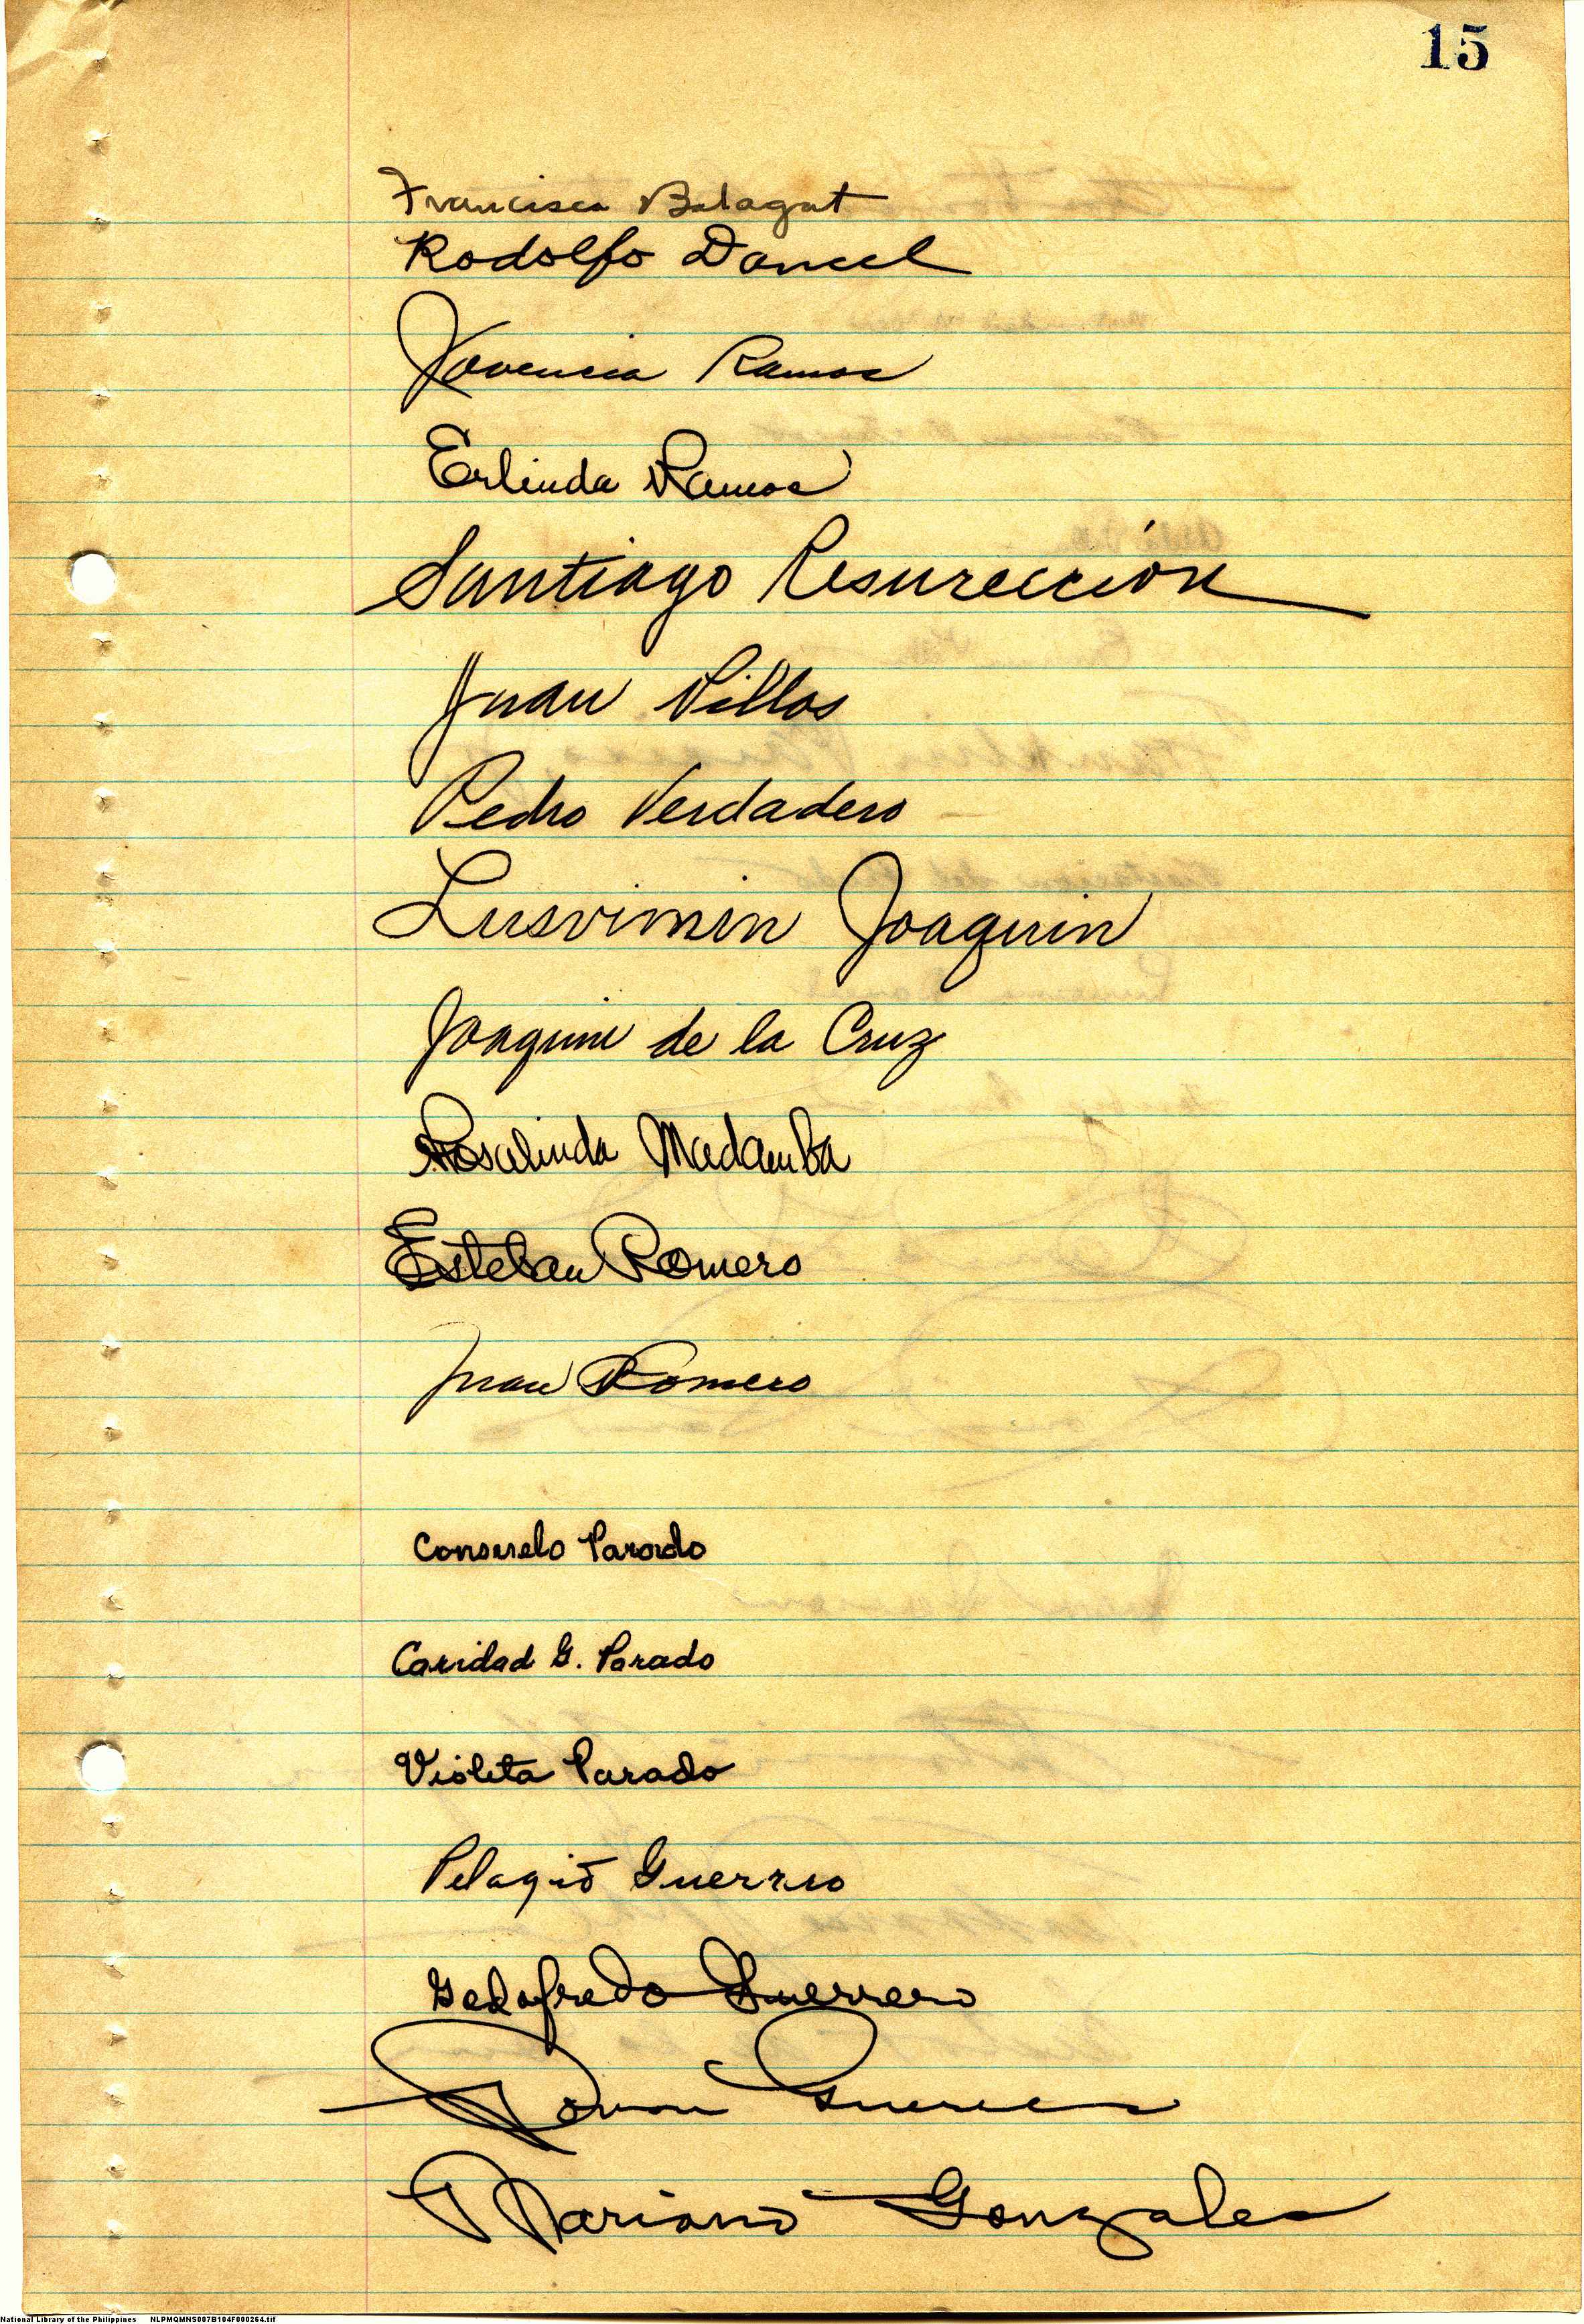 15
Francisca Balagat
Rodolfo Dancel
Jovencia Ramos
Erlinda Ramos
Santiago Resureccion
Juan Villas
Pedro Verdadero
Lusvimin Joaquin
Joaquin de la Cruz
Rosalinda Madamba
Esteban Romero
Juan Romero
Consuelo Parado
Caridad G. Parado
Violeta Parado
Pelagio Guerrero
Godofredo Guerrero
Roman Guerrero
Mariano Gonzales
National Library of the Philippines NLPMQMNS007B104F000264.tif